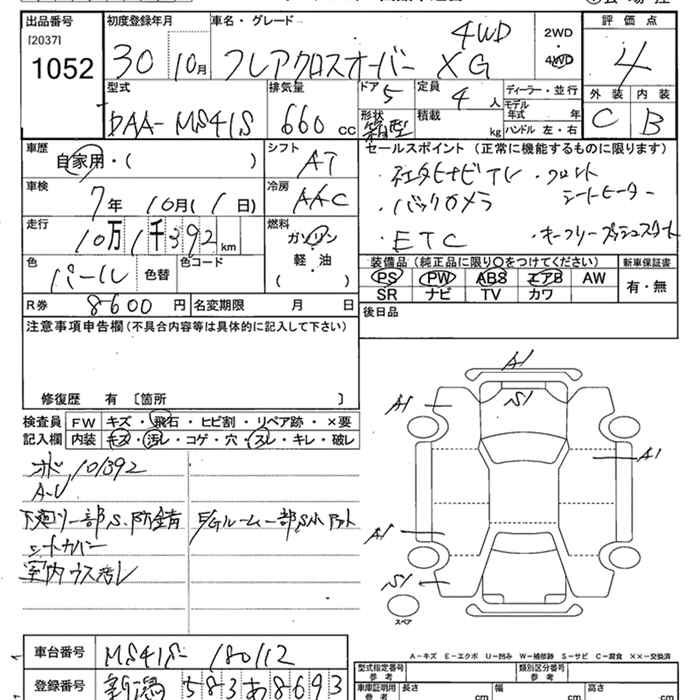 出品番号 初度登録年月 車名・グレード
[2037]
1052 30 10月 フレアクロスオーバー 4WD XG
2WD
4WD
評価点
4
外装 内装
C B
型式 排気量 ドア 定員 ディーラー・並行
DAA-MS41S 660cc 5 4人
モデル年式 年
形状 箱型 積載 kg ハンドル 左・右
車歴 シフト セールスポイント(正常に機能するものに限ります)
自家用・( ) AT
・社外ナビTV ・フロントシートヒーター
車検 冷房
7年10月(1日) AAC
・バックカメラ
走行 燃料
10万1千392km ガソリン
軽・油
( )
・ETC ・キーフリープッシュスタート
色 色替 色コード
パール
装備品(純正品に限り○をつけてください) 新車保証書
PS PW ABS エアB AW 有・無
SR ナビ TV カワ
R券 8600円 名変期限 月 日
後日品
注意事項申告欄(不具合内容等は具体的に記入して下さい)
修復歴 有〔箇所 〕
検査員記入欄 FW キズ・飛石・ヒビ割・リペア跡・×要
内装 キズ・汚レ・コゲ・穴・スレ・キレ・破レ
101392
下廻り一部S、防錆
シートカバー
室内ウス汚レ
A1
S1
A1
A1
A1
S1
スペア
A-キズ E-エクボ U-凹み W-補修跡 S-サビ C-腐食 ××-交換済
車台番号 MS41S-180112
登録番号 新潟583あ8693
型式指定番号 参考 類別区分番号 参考
車庫証明用 参考 長さ cm 幅 cm 高さ cm